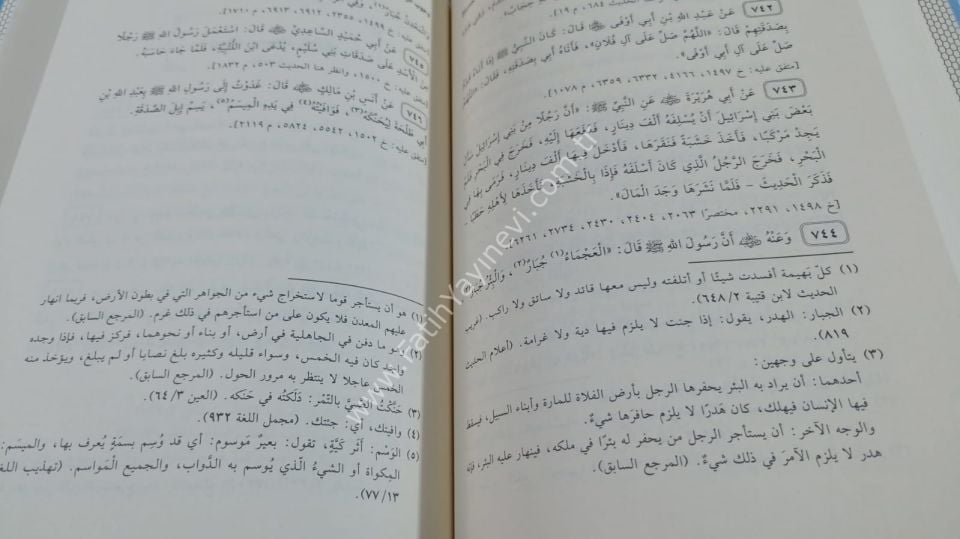 الحديث ٦٨٤، م ١٩].
٧٤٢ عَنْ عَبْدِ اللهِ بْنِ أَبِي أَوْفَى قَالَ: كَانَ النَّبِيُّ ﷺ إِذَا أَتَاهُ قَوْمٌ
بِصَدَقَتِهِمْ قَالَ: «اللَّهُمَّ صَلِّ عَلَى آلِ فُلَانٍ»، فَأَتَاهُ أَبِي بِصَدَقَتِهِ، فَقَالَ: «اللَّهُمَّ
صَلِّ عَلَى آلِ أَبِي أَوْفَى».
[متفق عليه: خ ١٤٩٧، ٤١٦٦، ٦٣٣٢، ٦٣٥٩، م ١٠٧٨].
٧٤٣ عَنْ أَبِي هُرَيْرَةَ ﷺ عَنِ النَّبِيِّ ﷺ: «أَنَّ رَجُلًا مِنْ بَنِي إِسْرَائِيلَ سَأَلَ
بَعْضَ بَنِي إِسْرَائِيلَ أَنْ يُسْلِفَهُ أَلْفَ دِينَارٍ، فَدَفَعَهَا إِلَيْهِ، فَخَرَجَ فِي الْبَحْرِ فَلَمْ
يَجِدْ مَرْكَبًا، فَأَخَذَ خَشَبَةً فَنَقَرَهَا، فَأَدْخَلَ فِيهَا أَلْفَ دِينَارٍ، فَرَمَى بِهَا فِي
الْبَحْرِ، فَخَرَجَ الرَّجُلُ الَّذِي كَانَ أَسْلَفَهُ فَإِذَا بِالْخَشَبَةِ، فَأَخَذَهَا لِأَهْلِهِ حَطَبًا -
فَذَكَرَ الْحَدِيثَ - فَلَمَّا نَشَرَهَا وَجَدَ الْمَالَ».
[خ ١٤٩٨، ٢٢٩١، مختصرًا ٢٠٦٣، ٢٤٠٤، ٢٤٣٠، ٢٧٣٤، ٦٢٦١].
٧٤٤ وَعَنْهُ أَنَّ رَسُولَ اللهِ ﷺ قَالَ: «الْعَجْمَاءُ(١) جُبَارٌ(٢)، وَالْبِئْرُ جُبَارٌ(٣)
(١) كلّ بهيمة أفسدت شيئًا أو أتلفته وليس معها قائد ولا سائق ولا راكب. (غريب
الحديث لابن قتيبة ٢/ ٦٤٨).
(٢) الجبار: الهدر، يقول: إذا جنت لا يلزم فيها دية ولا غرامة. (أعلام الحديث
٨١٩).
(٣) يتأول على وجهين:
أحدهما: أن يراد به البئر يحفرها الرجل بأرض الفلاة للمارة وأبناء السبيل، فيسقط
فيها الإنسان فيهلك، كان هَدرًا لا يلزم حافرَها شيءٌ.
والوجه الآخر: أن يستأجر الرجل من يحفر له بئرًا في ملكه، فينهار عليه البئر، فإنه
هدر لا يلزم الآمرَ في ذلك شيءٌ. (المرجع السابق).
[متفق عليه: خ ١٤٩٩، ٢٣٥٥، ٦٩١٢، ٦٩١٣، م ١٧١٠].
٧٤٥ عَنْ أَبِي حُمَيْدٍ السَّاعِدِيِّ قَالَ: اسْتَعْمَلَ رَسُولُ اللهِ ﷺ رَجُلًا
مِنَ الْأَسْدِ عَلَى صَدَقَاتِ بَنِي سُلَيْمٍ، يُدْعَى ابْنَ اللُّتْبِيَّةِ، فَلَمَّا جَاءَ حَاسَبَهُ.
[متفق عليه: خ ١٥٠٠، وانظر هنا الحديث ٥٠٣، م ١٨٣٢].
٧٤٦ عَنْ أَنَسِ بْنِ مَالِكٍ قَالَ: غَدَوْتُ إِلَى رَسُولِ اللهِ ﷺ بِعَبْدِ اللهِ بْنِ
أَبِي طَلْحَةَ لِيُحَنِّكَهُ(٣)، فَوَافَيْتُهُ(٤) فِي يَدِهِ الْمِيسَمُ(٥)، يَسِمُ إِبِلَ الصَّدَقَةِ.
[متفق عليه: خ ١٥٠٢، ٥٥٤٢، ٥٨٢٤، م ٢١١٩].
(١) هو أن يستأجر قوما لاستخراج شيء من الجواهر التي في بطون الأرض، فربما انهار
عليهم المعدن فلا يكون على من استأجرهم في ذلك غرم. (المرجع السابق).
(٢) وهو ما دفن في الجاهلية في أرض، أو بناء أو نحوهما، فركز فيها، فإذا وجده
واجد كان فيه الخمس، وسواء قليله وكثيره بلغ نصابا أو لم يبلغ، ويؤخذ منه
الخمس عاجلا لا ينتظر به مرور الحول. (المرجع السابق).
(٣) حَنَّكْتُ الصَّبيَّ بالتَّمْرِ: دَلَكتُه في حَنَكه. (العين ٣/ ٦٤).
(٤) وافيتك، أي: جئتك. (مجمل اللغة ٩٣٢).
(٥) الوَسْم: أثَرُ كَيَّةٍ، تقول: بعيرٌ موسوم: أي قد وُسِم بسمَةٍ يُعرف بها، والميسَم:
المِكواة أو الشيءُ الّذي يُوسم به الدَّواب، والجميع المَواسم. (تهذيب اللغة
١٣/ ٧٧).
www.FatihYayinevi.com.tr